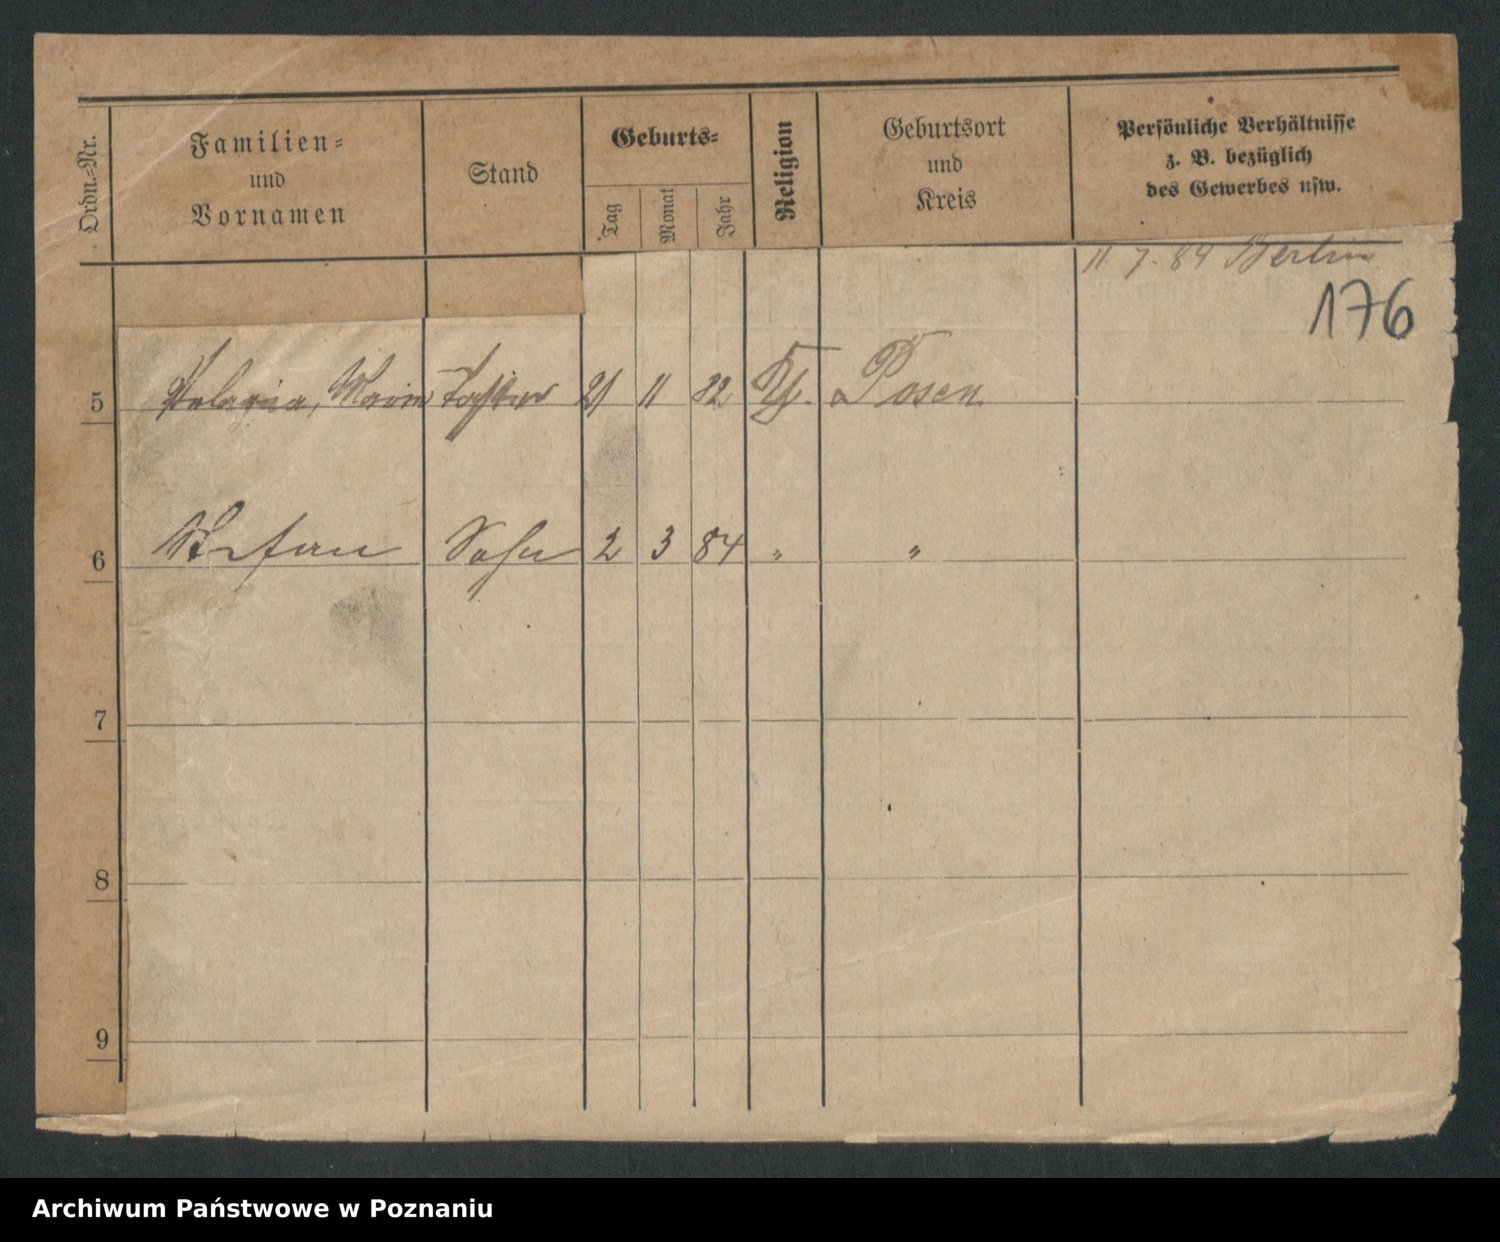 Ordn.-Nr. Familien= und Vornamen Stand Geburts= Tag Monat Jahr Religion Geburtsort und Kreis Persönliche Verhältnisse z. B. bezüglich des Gewerbes usw.
11. 7. 84 Berlin
176
5 Pelagia, Marie Tochter 21 11 82 Posen
6 Stefan Sohn 2 3 84 " "
7
8
9
Archiwum Państwowe w Poznaniu